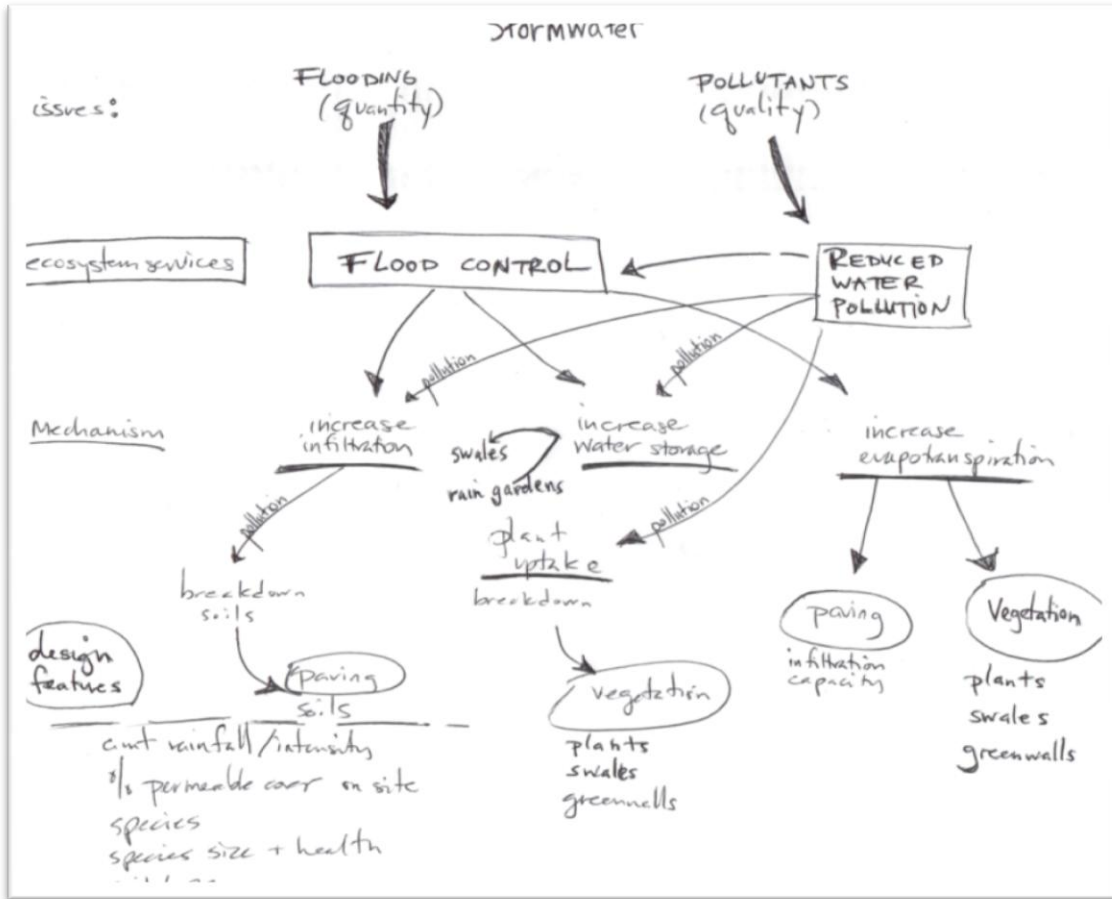 Stormwater
issues:
FLOODING
(quantity)
POLLUTANTS
(quality)
ecosystem services
FLOOD CONTROL
REDUCED
WATER
POLLUTION
pollution
pollution
Mechanism
increase
infiltration
swales
rain gardens
increase
water storage
increase
evapotranspiration
pollution
pollution
plant
uptake
breakdown
breakdown
soils
design
features
paving
soils
vegetation
plants
swales
greenwalls
paving
infiltration
capacity
Vegetation
plants
swales
greenwalls
amt rainfall/intensity
% permeable cover on site
species
species size + health